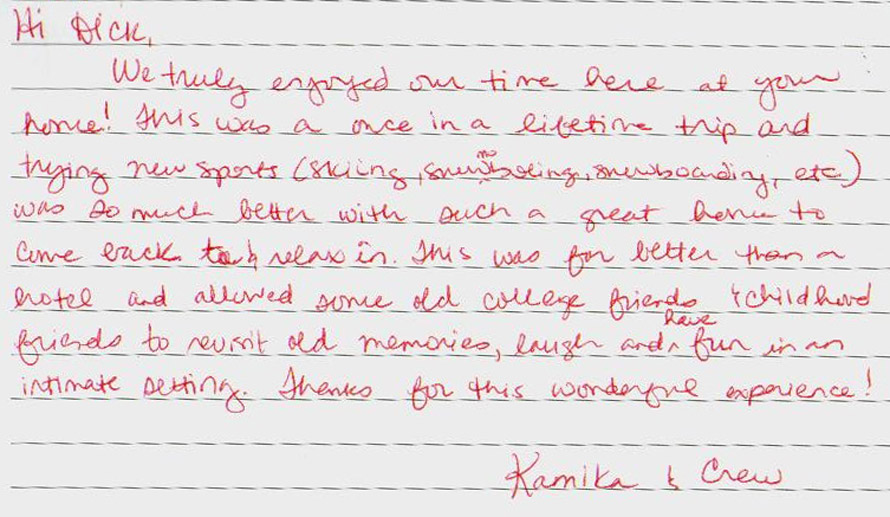 Hi Dick,
We truly enjoyed our time here at your
home! This was a once in a lifetime trip and
trying new sports (skiing, snowmobiling, snowboarding, etc)
was so much better with such a great home to
come back to & relax in. This was far better than a
hotel and allowed some old college friends & childhood
friends to revisit old memories, laugh and have fun in an
intimate setting. Thanks for this wonderful experience!
Kamika & Crew